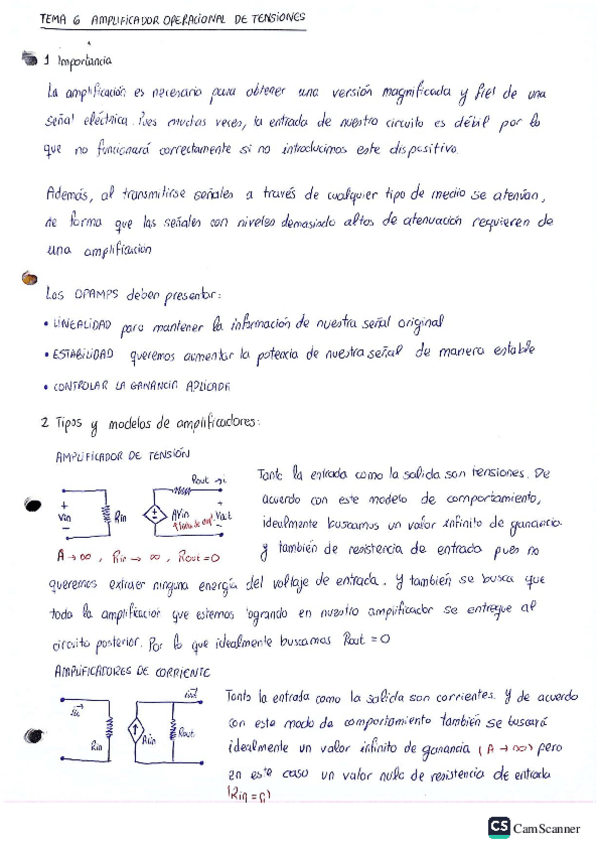 TEMA 6 AMPLIFICADOR OPERACIONAL DE TENSIONES
1 Importancia
La amplificación es necesario para obtener una versión magnificada y fiel de una
señal eléctrica. Pues muchas veces, la entrada de nuestro circuito es débil por lo
que no funcionará correctamente si no introducimos este dispositivo.
Además, al transmitirse señales a través de cualquier tipo de medio se atenúan,
de forma que las señales con niveles demasiado altos de atenuación requieren de
una amplificación
Los OPAMPS deben presentar:
• LINEALIDAD para mantener la información de nuestra señal original
• ESTABILIDAD queremos aumentar la potencia de nuestra señal de manera estable
• CONTROLAR LA GANANCIA APLICADA
2 Tipos y modelos de amplificadores:
AMPLIFICADOR DE TENSIÓN
+ Vin - Rin AVin Rout + Vout -
A → ∞, Rin → ∞, Rout = 0
Tanto la entrada como la salida son tensiones. De
acuerdo con este modelo de comportamiento,
idealmente buscamos un valor infinito de ganancia
y también de resistencia de entrada pues no
queremos extraer ninguna energía del voltaje de entrada. Y también se busca que
toda la amplificación que estemos logrando en nuestro amplificador se entregue al
circuito posterior. Por lo que idealmente buscamos Rout = 0
AMPLIFICADORES DE CORRIENTE
Rin Aiin Rout iout
Tanto la entrada como la salida son corrientes. Y de acuerdo
con este modo de comportamiento también se buscará
idealmente un valor infinito de ganancia (A → ∞) pero
en este caso un valor nulo de resistencia de entrada
CS CamScanner